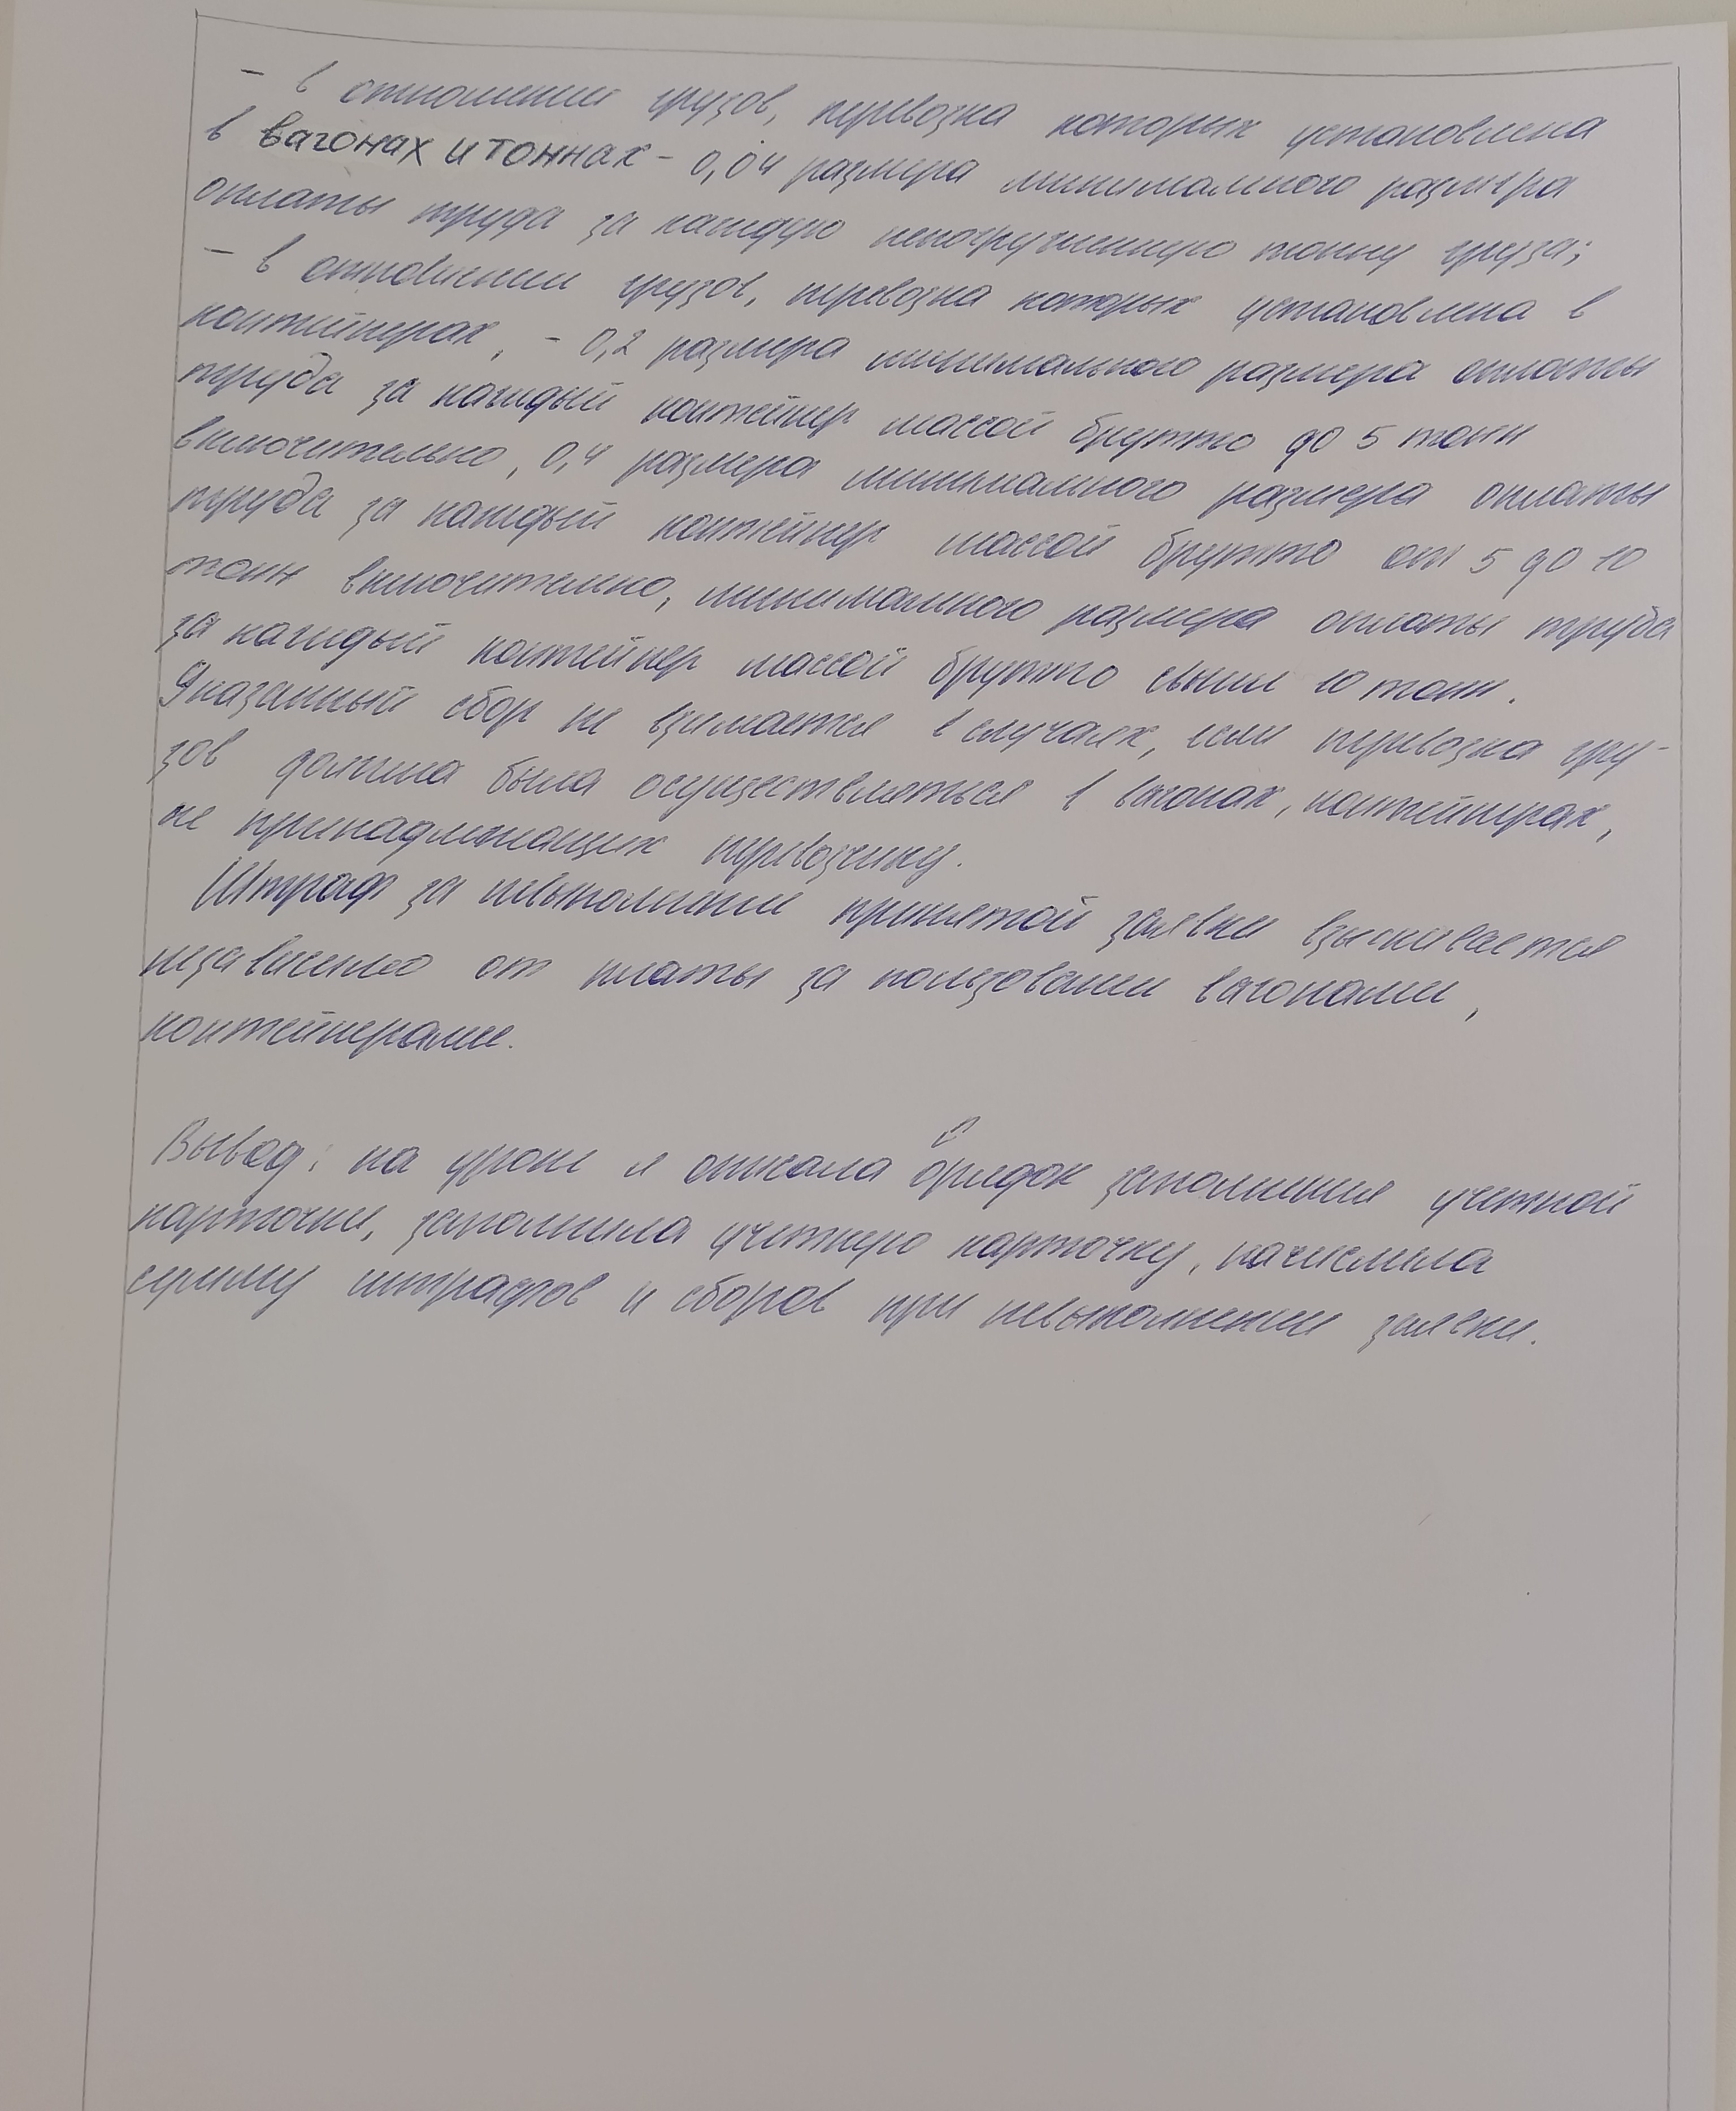 - в отношении грузов, перевозка которых установлена
в вагонах и тоннах - 0,04 размера минимального размера
оплаты труда за каждую непогруженную тонну груза;
- в отношении грузов, перевозка которых установлена в
контейнерах, - 0,2 размера минимального размера оплаты
труда за каждый контейнер массой брутто до 5 тонн
включительно, 0,4 размера минимального размера оплаты
труда за каждый контейнер массой брутто от 5 до 10
тонн включительно, минимального размера оплаты труда
за каждый контейнер массой брутто свыше 10 тонн.
Указанный сбор не взимается в случаях, если перевозка гру-
зов должна была осуществляться в вагонах, контейнерах,
не принадлежащих перевозчику.
Штраф за невыполнение принятой заявки взыскивается
независимо от платы за пользование вагонами,
контейнерами.
Вывод: на уроке я описала порядок заполнения учетной
карточки, заполнила учетную карточку, начислила
сумму штрафов и сборов при невыполнении заявки.